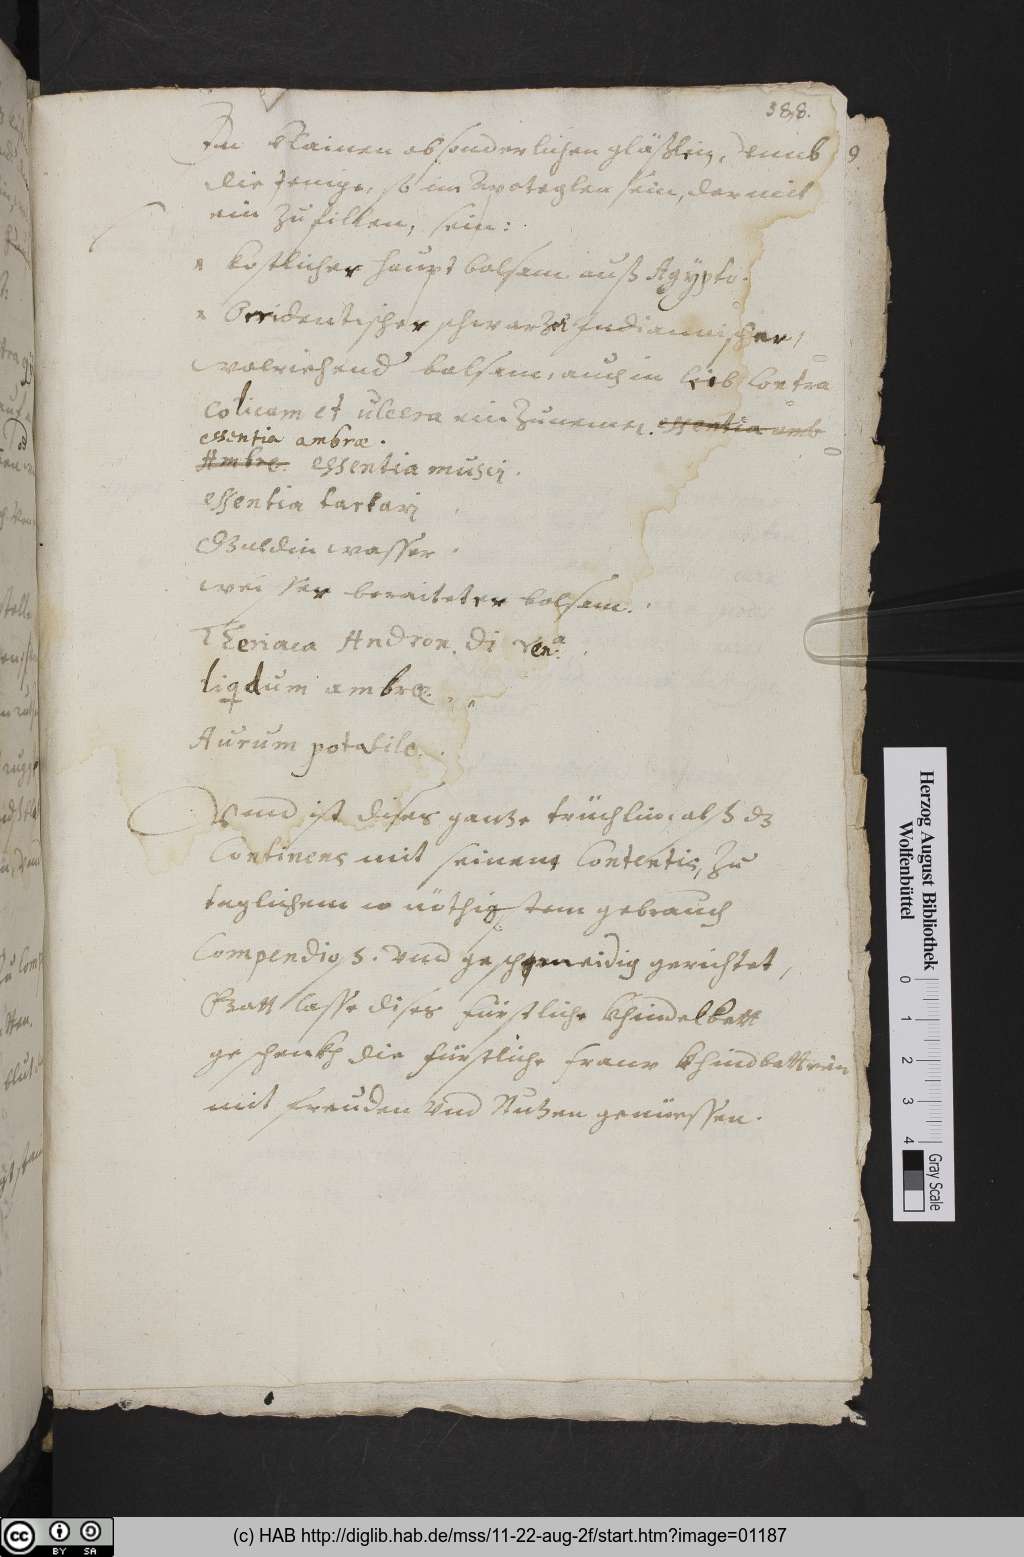 388.
In klainen absonderlichen gläßlen, Vmb
die Jenige, so im Apotegken sein, dermit
ein zu fillen, sein:
kostlicher haupt balsam auß Ägypto.
Occidentischer schwartzer Indiannischer,
wolriehend balsam, auch in leib Contra
Colicam et ulcera ein Zunemen. essentia amb
essentia ambræ.
Ambre. essentia musci.
essentia tartari
Guldin wasser.
weisser beraiteter balsam.
Theriaca Andron. di Ven.a
liqdum ambre.
Aurum potabile.
Vnnd ist dises gantze trüchlin, alß dz
Continens mit seinem Contentis, Zu
teglichem nöthigstem gebrauch
Compendios. Vnd geschmeidig gerichtet,
Gott lasse dises fürstliche khindelbett
geschenkh die fürstliche fraw khindbetterin
mit freuden Vnd Nutzen genüessen.
Herzog August Bibliothek
Wolfenbüttel
0 1 2 3 4
Gray Scale
cc BY SA
(c) HAB http://diglib.hab.de/mss/11-22-aug-2f/start.htm?image=01187